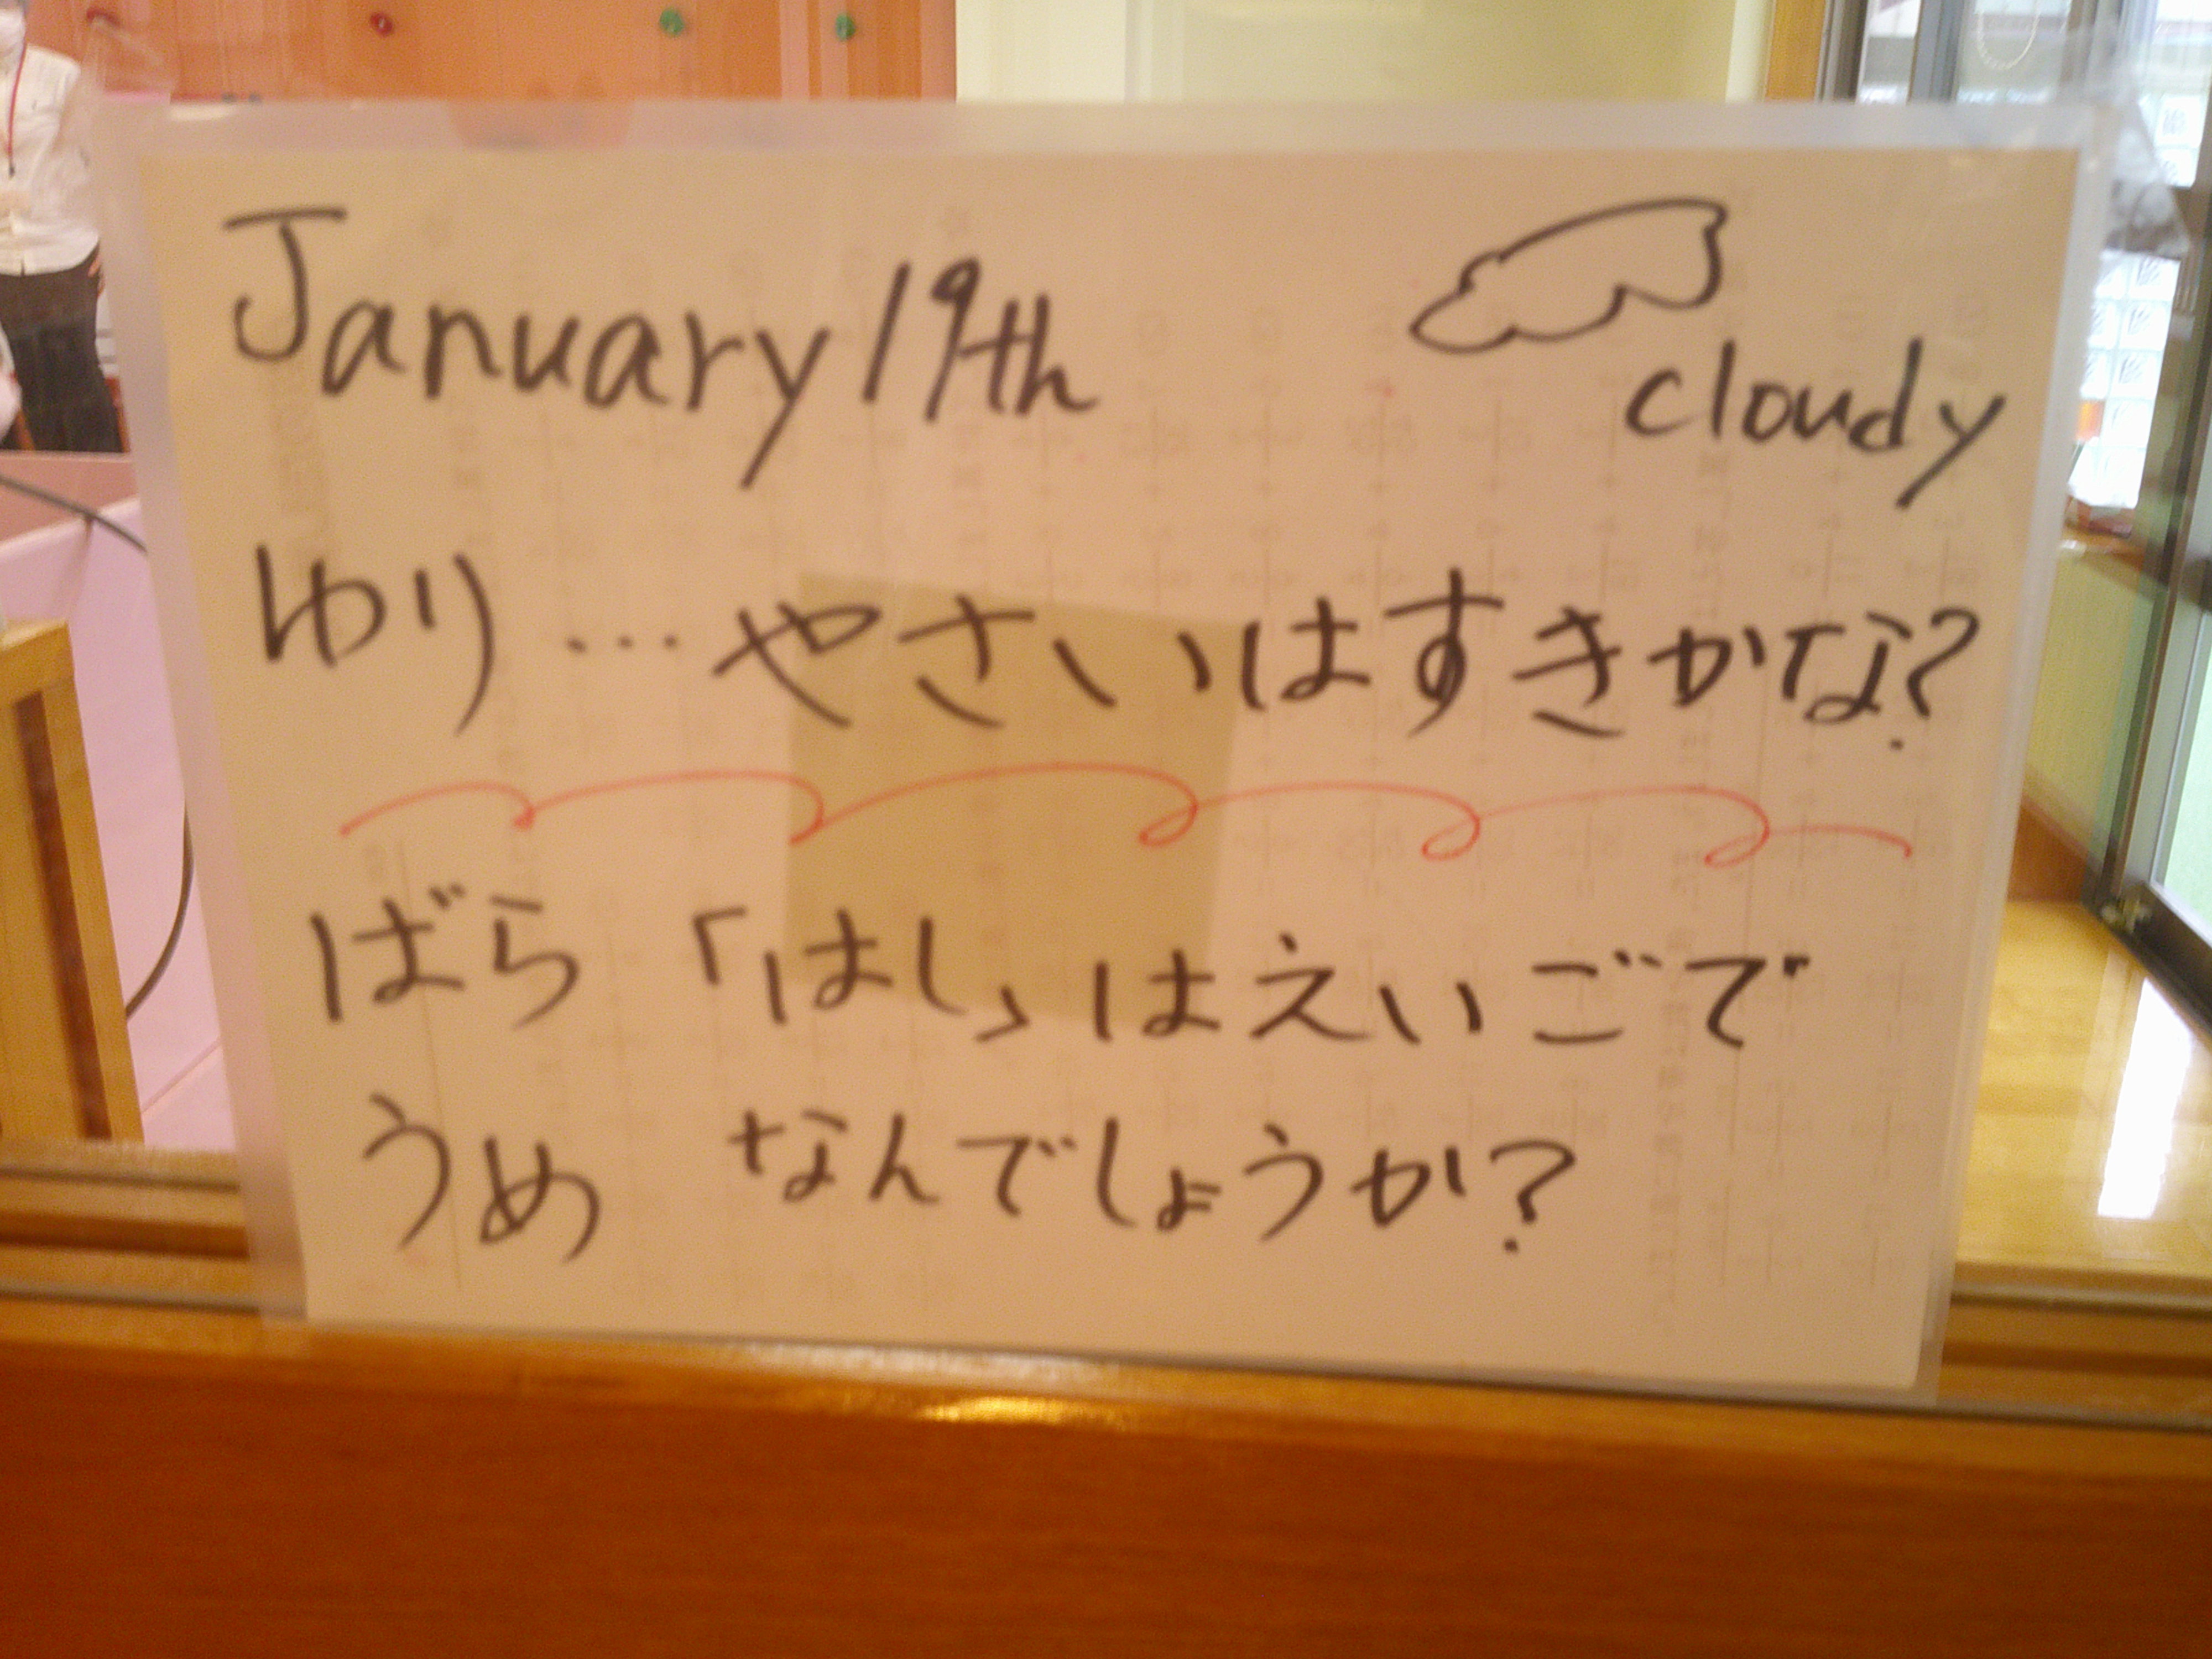 January 19th
cloudy
ゆり…やさいはすきかな?
ばら 「はし」はえいごで
うめ なんでしょうか?